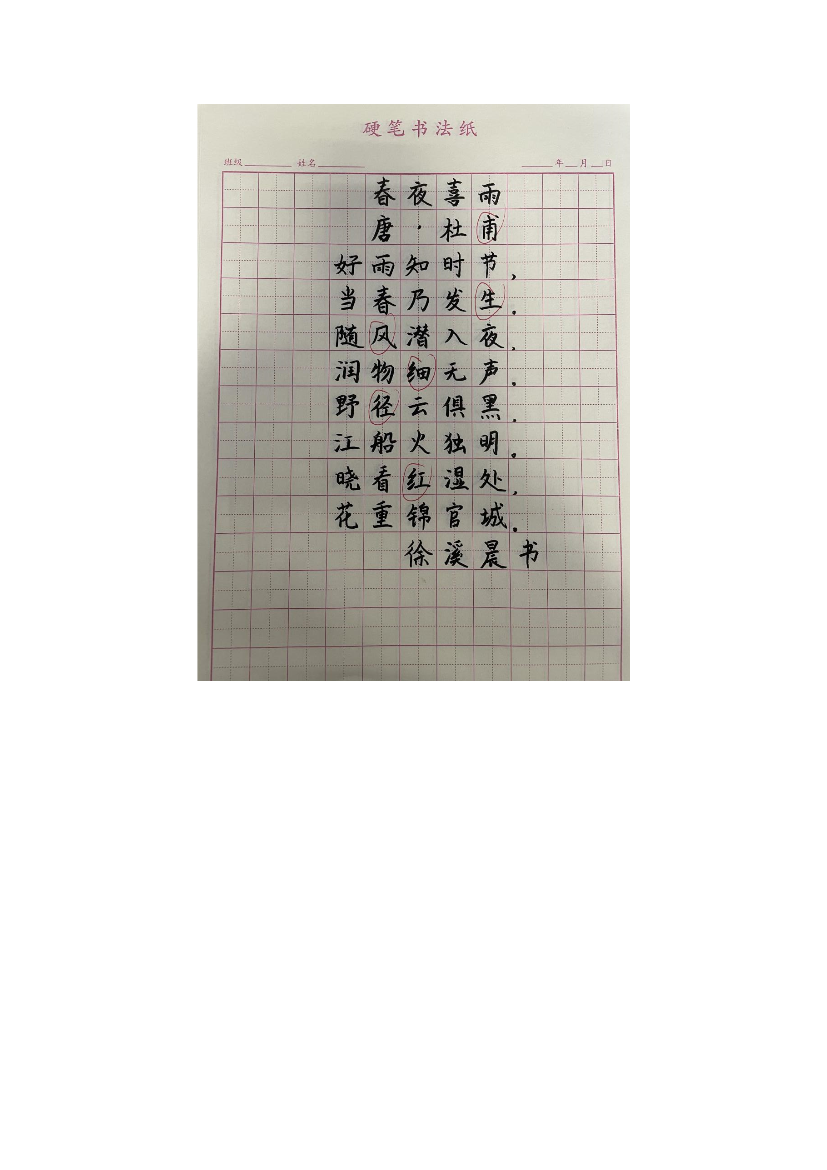 硬笔书法纸
班级 姓名 年 月 日
春夜喜雨
唐·杜甫
好雨知时节,
当春乃发生.
随风潜入夜,
润物细无声.
野径云俱黑.
江船火独明.
晓看红湿处,
花重锦官城.
徐溪晨书